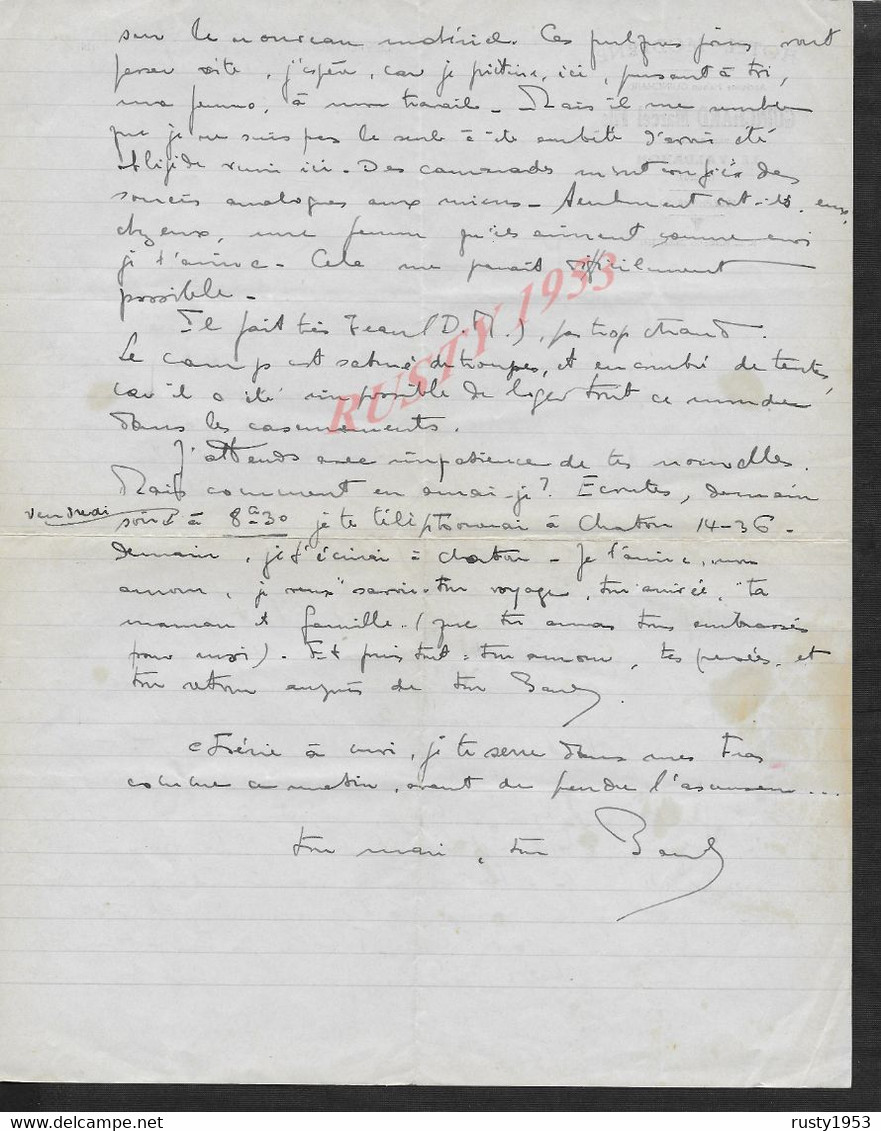 sur le nouveau matériel. Ces quelques jours vont
passer vite, j'espère, car je piétine, ici, pensant à toi,
ma femme, à mon travail - Mais il me semble
que je ne suis pas le seul à être embêté d'avoir été
obligé de venir ici - Des camarades m'ont confié des
soucis analogues aux miens - Seulement ont-ils, eux,
chez eux, une femme qu'ils aiment comme moi
je t'aime - Cela me paraît difficilement
possible -
Il fait très beau (D.M.), pas trop chaud.
Le camp est saturé de troupes, et encombré de tentes,
car il a été impossible de loger tout ce monde
dans les casernements.
J'attends avec impatience de tes nouvelles.
Mais comment en aurai-je? Ecoutes, demain
vendredi soir à 8h30 je te téléphonerai à Chatou 14-36 -
demain, je t'écrirai à Chatou - Je t'aime, mon
amour, je veux savoir ton voyage, ton arrivée, ta
maman et famille. (que tu auras tous embrassés
pour moi). Et puis tout: ton amour, tes pensées, et
ton retour auprès de ton
Chérie à moi, je te serre dans mes bras
comme ce matin, avant de prendre l'ascenseur ...
ton mari, ton
RUSTY 1953
rusty1953